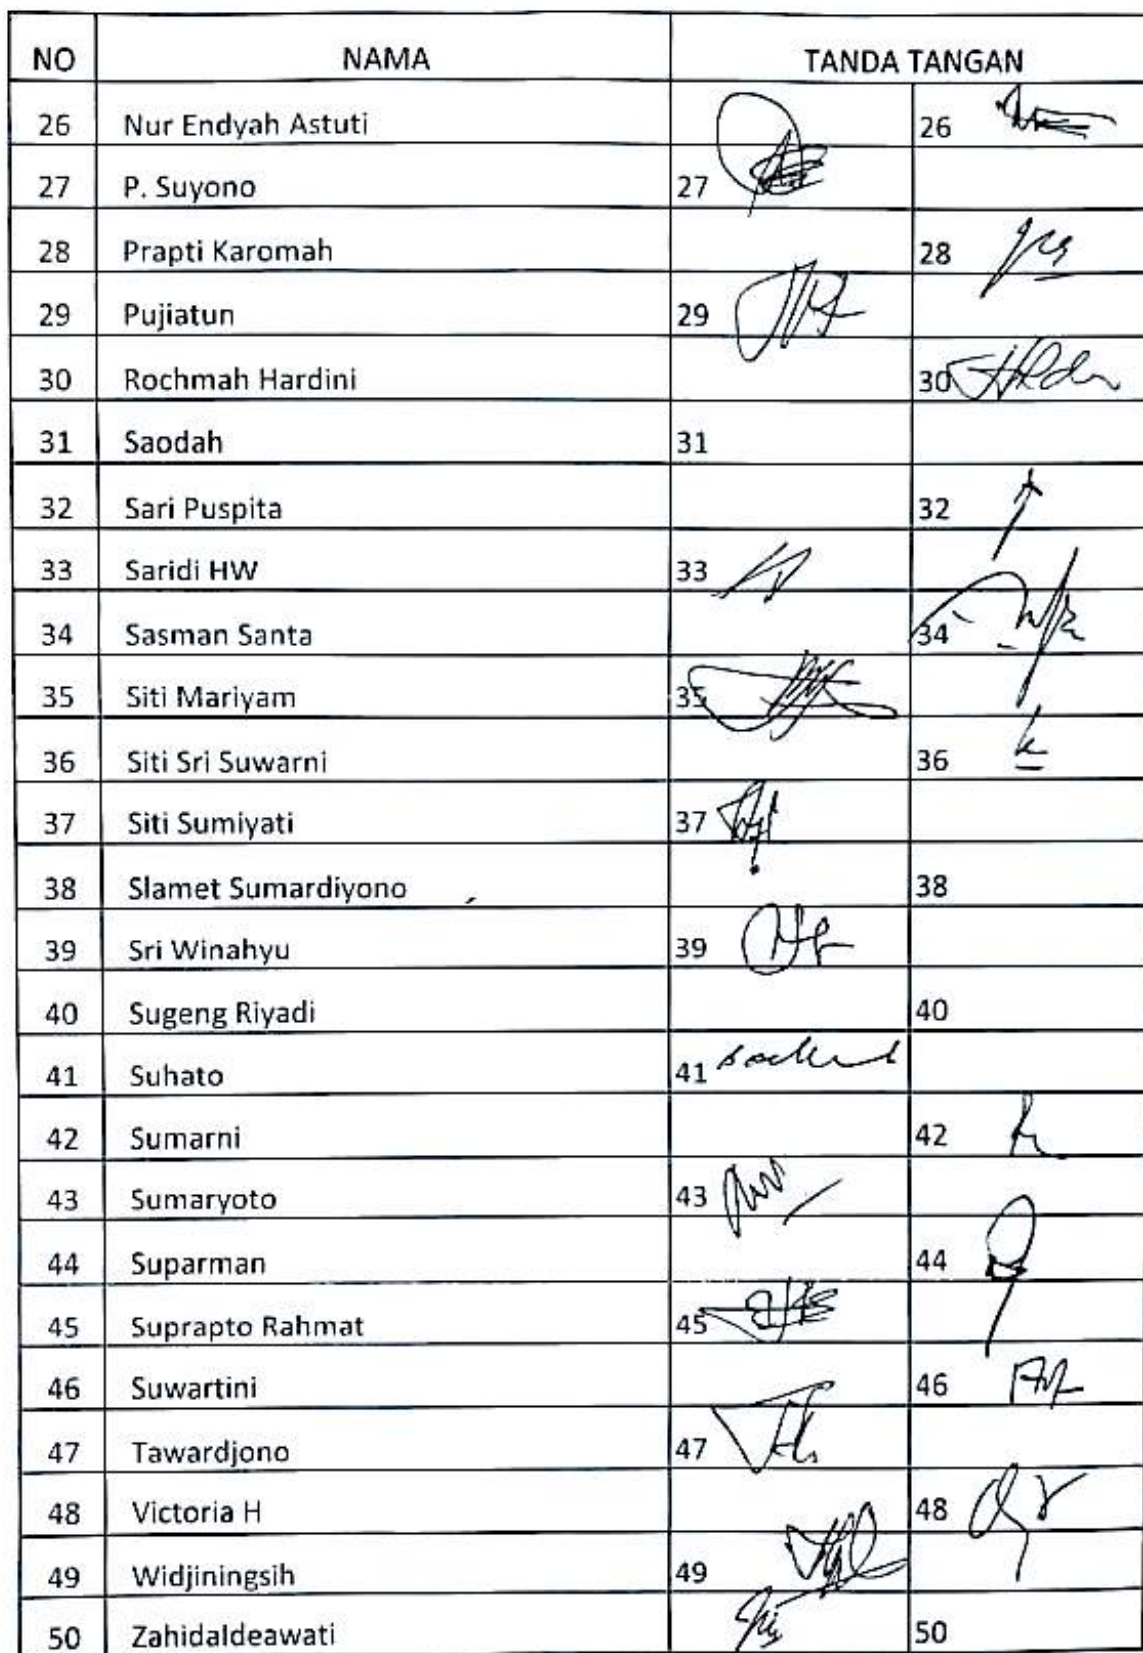 NO NAMA TANDA TANGAN
26 Nur Endyah Astuti 26
27 P. Suyono 27
28 Prapti Karomah 28
29 Pujiatun 29
30 Rochmah Hardini 30
31 Saodah 31
32 Sari Puspita 32
33 Saridi HW 33
34 Sasman Santa 34
35 Siti Mariyam 35
36 Siti Sri Suwarni 36
37 Siti Sumiyati 37
38 Slamet Sumardiyono 38
39 Sri Winahyu 39
40 Sugeng Riyadi 40
41 Suhato 41
42 Sumarni 42
43 Sumaryoto 43
44 Suparman 44
45 Suprapto Rahmat 45
46 Suwartini 46
47 Tawardjono 47
48 Victoria H 48
49 Widjiningsih 49
50 Zahidaldeawati 50